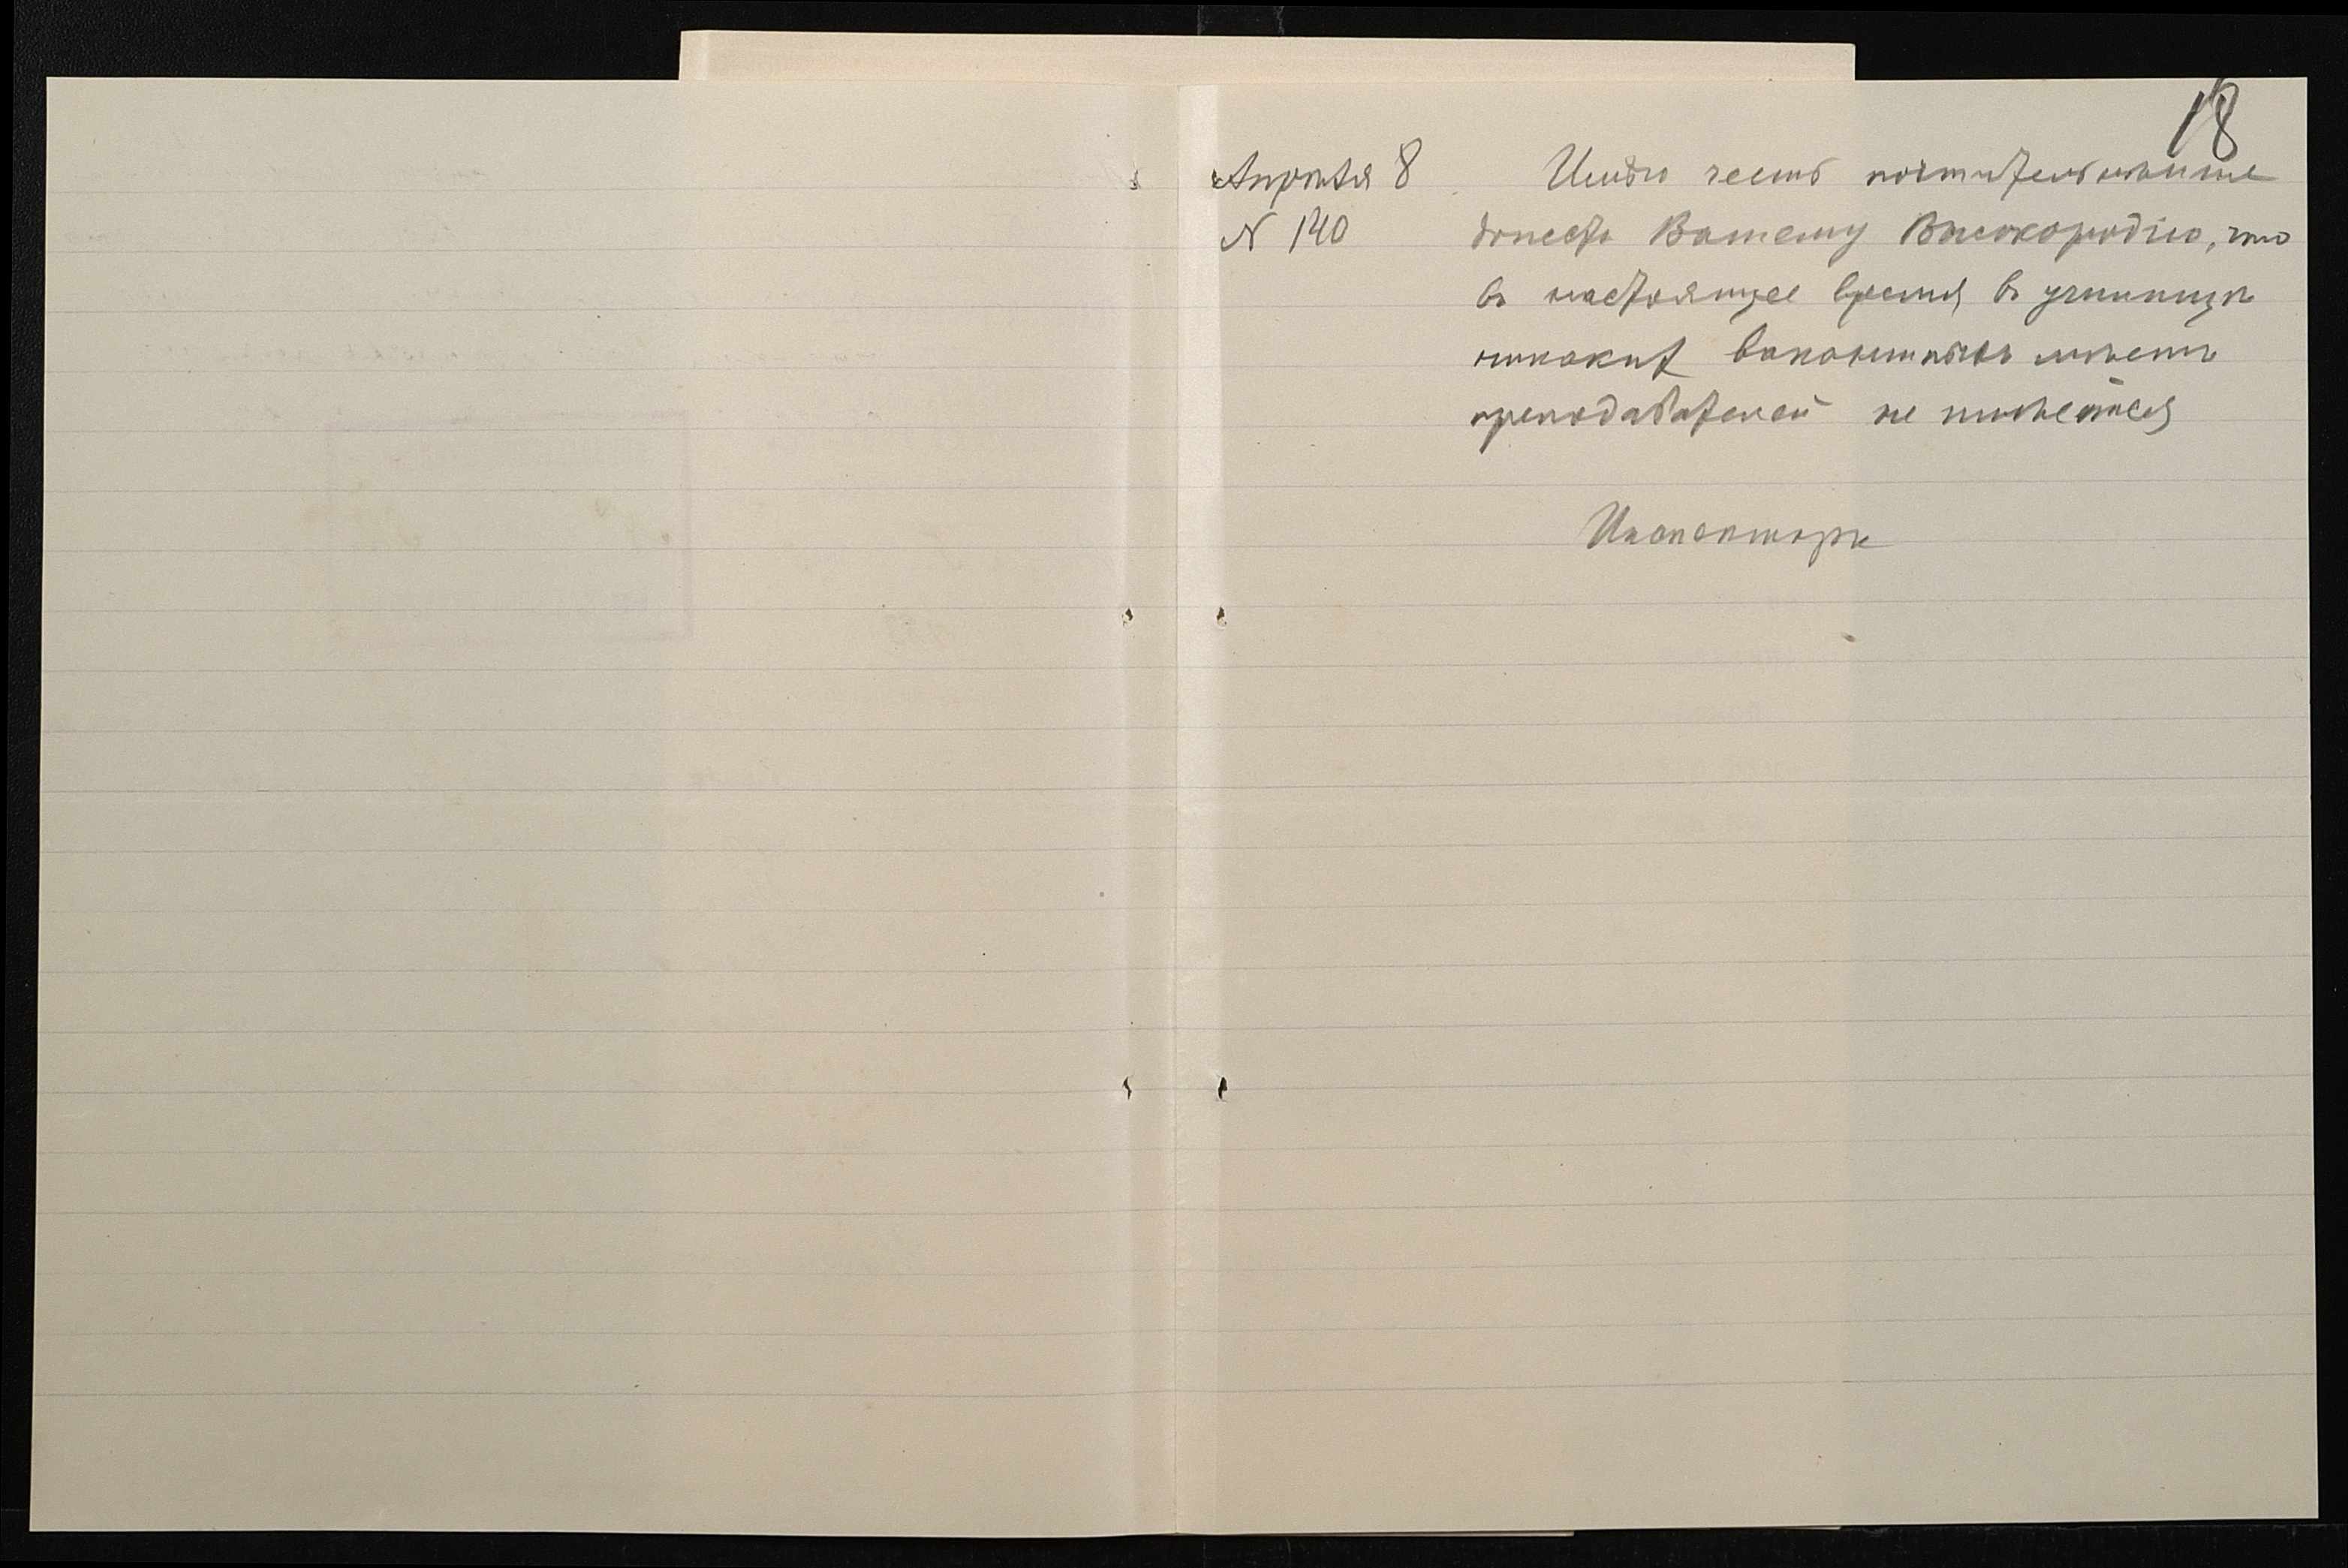 18
Апрѣля 8
N 140
Имѣю честь почтительнѣйше
донести Вашему Высокородію, что
въ настоящее время въ училищѣ
никакихъ вакантныхъ мѣстъ
преподавателей не имѣется
Инспекторъ